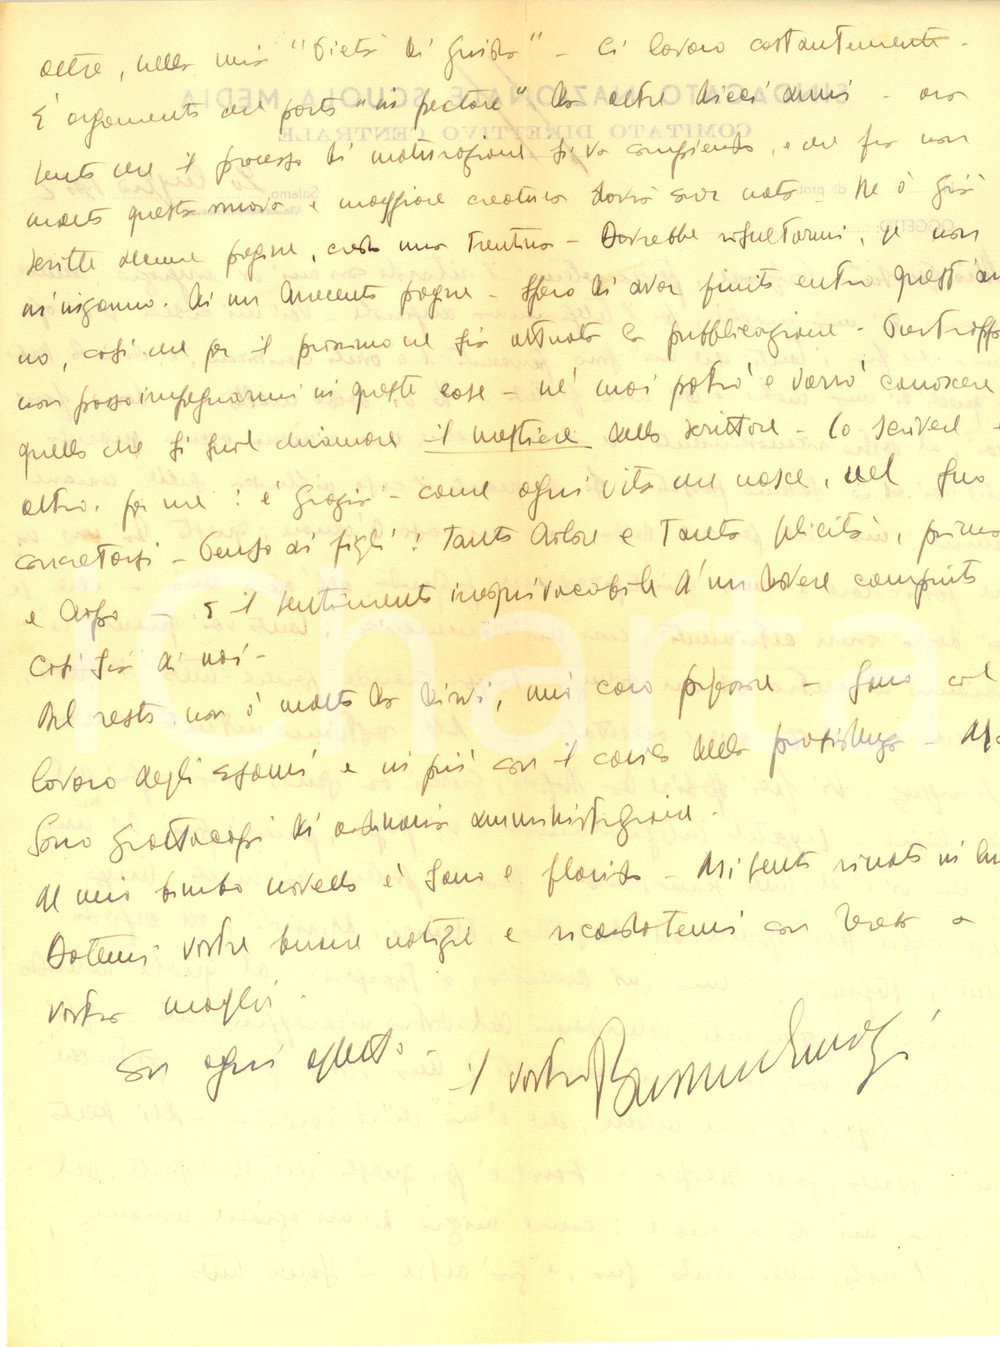 altre, nella mia "Pietà di Guido" - Ci lavoro costantemente.
È argomento che porto "in pectore" da oltre dieci anni - ora
sento che il processo di maturazione si va compiendo, e che fra non
molto questa nuova e maggiore creatura dovrà esser nata - Ne ò già
scritte alcune pagine, credo una trentina - Dovrebbe risultarmi, se non
m'inganno, di un trecento pagine - Spero di aver finito entro quest'an
no, così che per il prossimo ne sia attuata la pubblicazione - Purtroppo
non posso impegnarmi in queste cose - né mai potrò e vorrò conoscere
quello che si suol chiamare il mestiere dello scrittore - Lo scrivere è
altro, per me: è grazia - come ogni vita che nasce, nel suo
concretarsi - Penso ai figli! Tanto dolore e tanta felicità, prima
e dopo - E il sentimento inequivocabile d'un dovere compiuto
Così sia di noi -
Del resto non ò molto da dirvi, mio caro professore - Sono col
lavoro degli esami e in più con il carico della presidenza - Ma
sono grattacapi di ordinaria amministrazione.
Il mio bimbo novello è sano e florido - Mi sento rinato in lui
Datemi vostre buone notizie e ricordatemi con a
vostra moglie.
Con ogni affetto -
il vostro